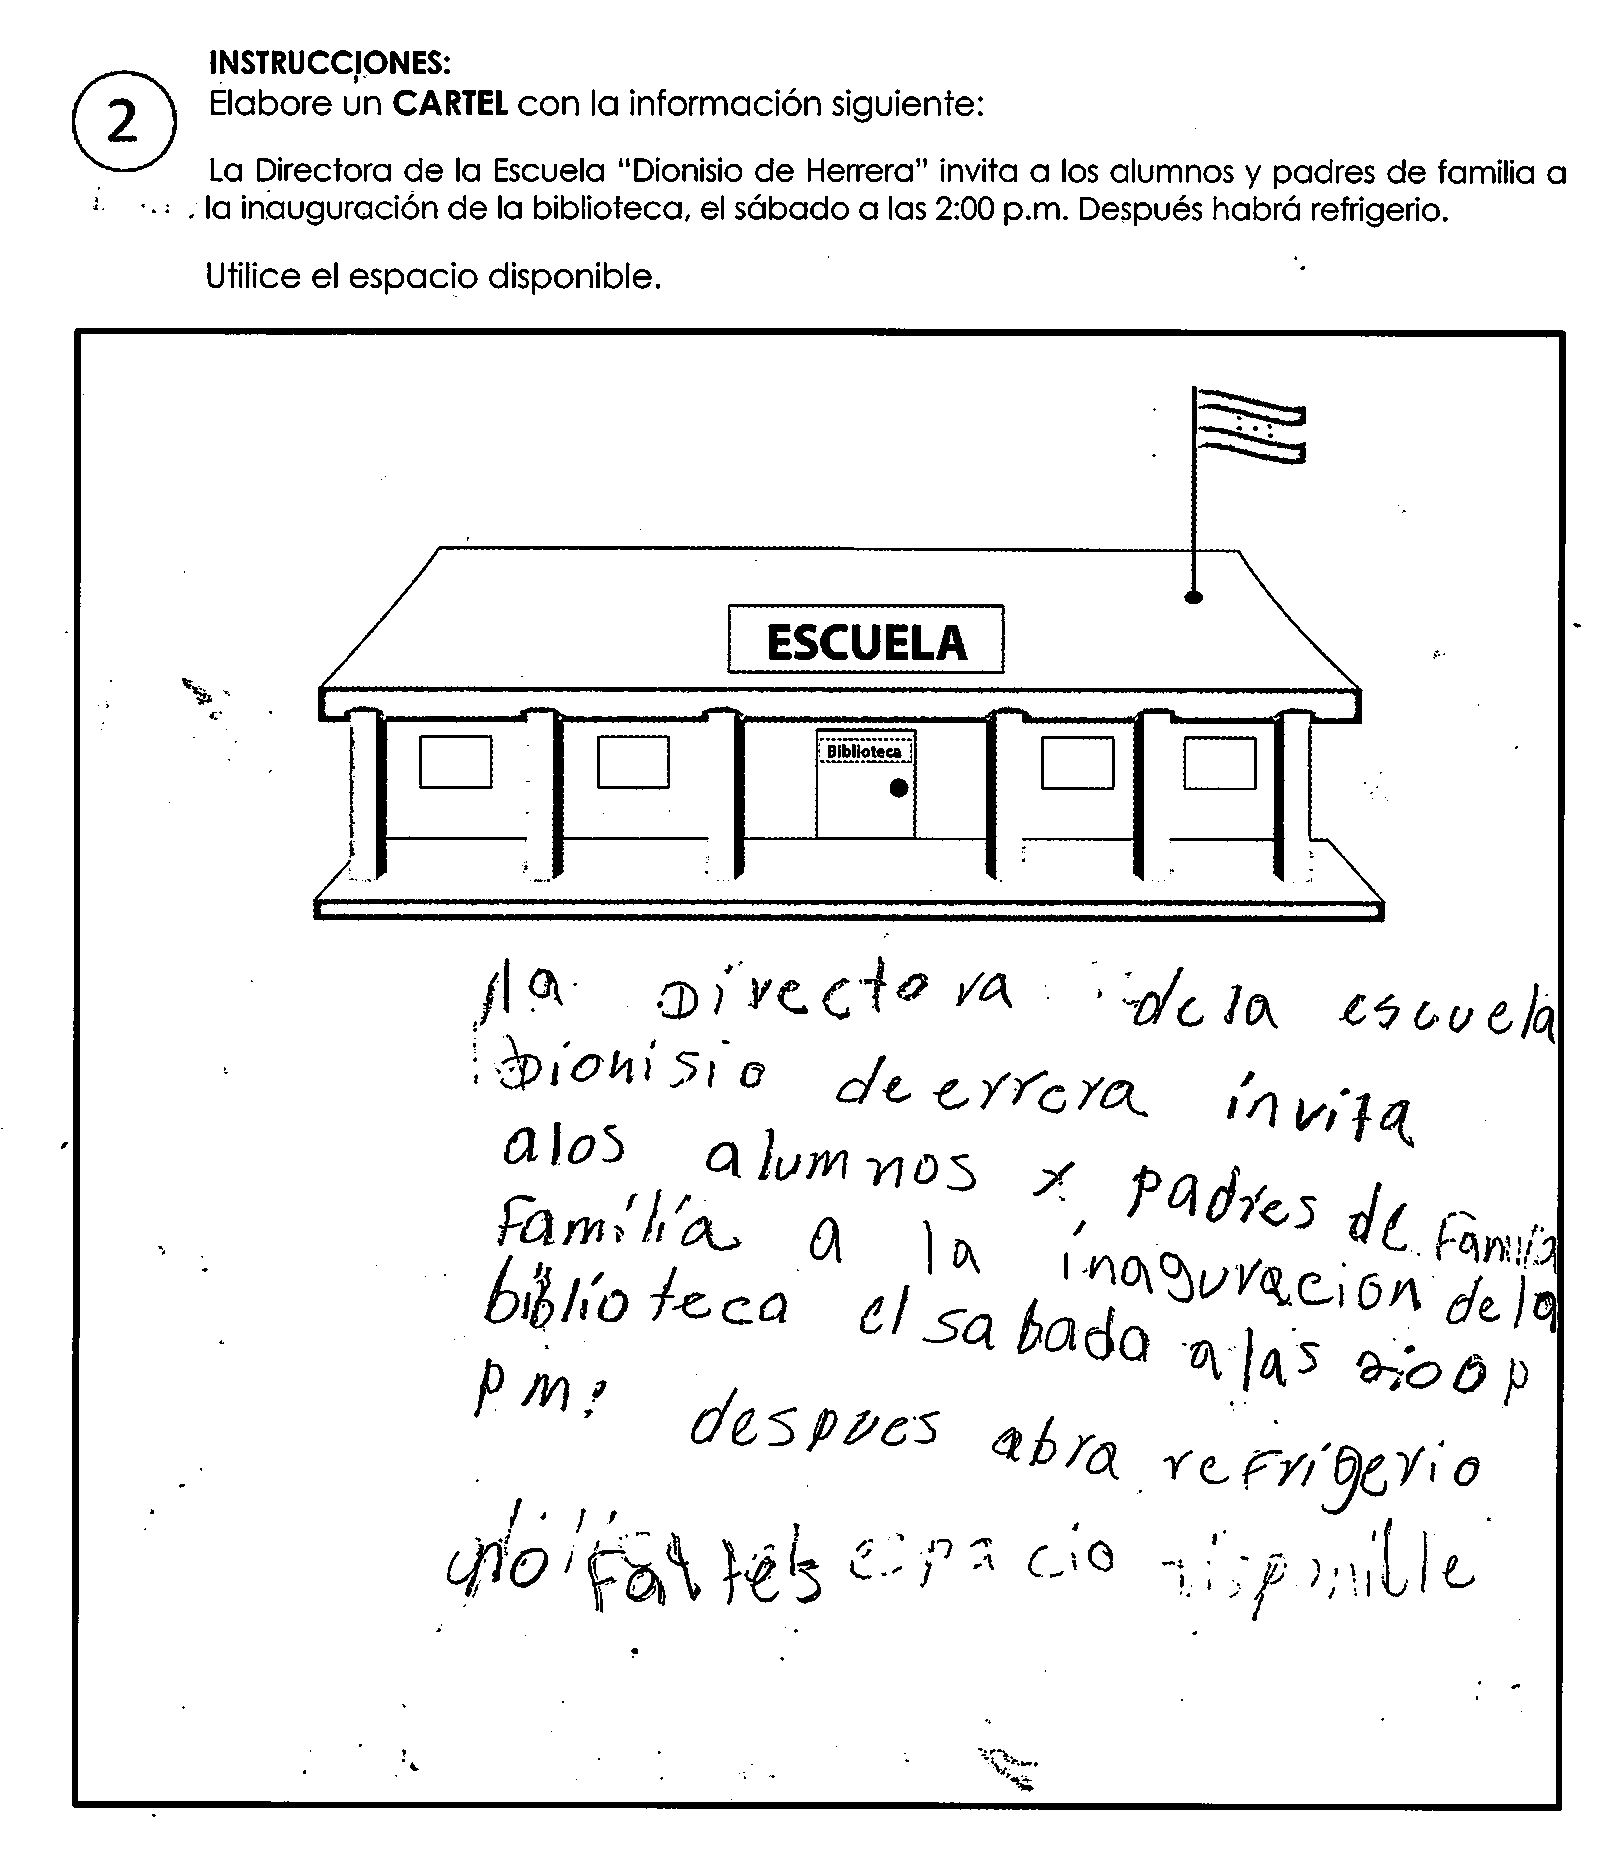 INSTRUCCIONES:
2
Elabore un CARTEL con la información siguiente:
La Directora de la Escuela "Dionisio de Herrera" invita a los alumnos y padres de familia a
la inauguración de la biblioteca, el sábado a las 2:00 p.m. Después habrá refrigerio.
Utilice el espacio disponible.
ESCUELA
Biblioteca
la Directora de la escuela
Dionisio de errera invita
alos alumnos y padres de Familia
Familia a la inaguracion de la
biblioteca el sabado a las 2:00 p
pm: despues abra refrigerio
no espacio disponible